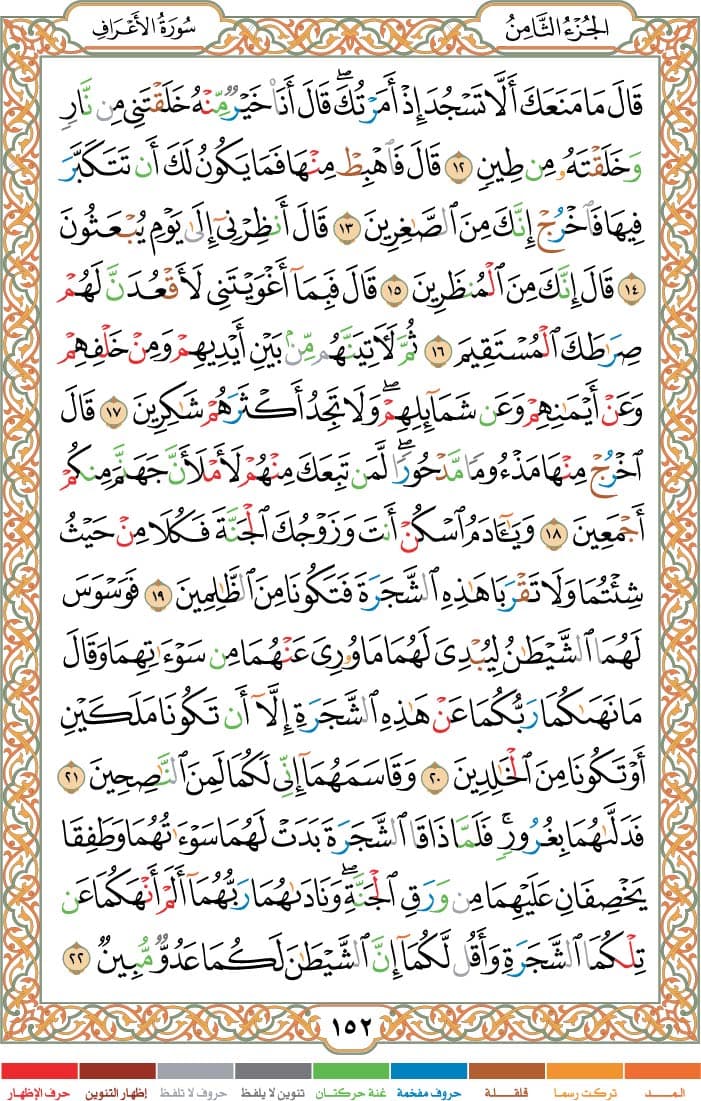 الجزء الثامن
سورة الأعراف
قَالَ مَا مَنَعَكَ أَلَّا تَسْجُدَ إِذْ أَمَرْتُكَ ۖ قَالَ أَنَا۠ خَيْرٌ مِّنْهُ خَلَقْتَنِى مِن نَّارٍ
وَخَلَقْتَهُۥ مِن طِينٍ ١٢ قَالَ فَٱهْبِطْ مِنْهَا فَمَا يَكُونُ لَكَ أَن تَتَكَبَّرَ
فِيهَا فَٱخْرُجْ إِنَّكَ مِنَ ٱلصَّٰغِرِينَ ١٣ قَالَ أَنظِرْنِىٓ إِلَىٰ يَوْمِ يُبْعَثُونَ
١٤ قَالَ إِنَّكَ مِنَ ٱلْمُنظَرِينَ ١٥ قَالَ فَبِمَآ أَغْوَيْتَنِى لَأَقْعُدَنَّ لَهُمْ
صِرَٰطَكَ ٱلْمُسْتَقِيمَ ١٦ ثُمَّ لَءَاتِيَنَّهُم مِّنۢ بَيْنِ أَيْدِيهِمْ وَمِنْ خَلْفِهِمْ
وَعَنْ أَيْمَٰنِهِمْ وَعَن شَمَآئِلِهِمْ ۖ وَلَا تَجِدُ أَكْثَرَهُمْ شَٰكِرِينَ ١٧ قَالَ
ٱخْرُجْ مِنْهَا مَذْءُومًا مَّدْحُورًا ۖ لَّمَن تَبِعَكَ مِنْهُمْ لَأَمْلَأَنَّ جَهَنَّمَ مِنكُمْ
أَجْمَعِينَ ١٨ وَيَٰٓـَٔادَمُ ٱسْكُنْ أَنتَ وَزَوْجُكَ ٱلْجَنَّةَ فَكُلَا مِنْ حَيْثُ
شِئْتُمَا وَلَا تَقْرَبَا هَٰذِهِ ٱلشَّجَرَةَ فَتَكُونَا مِنَ ٱلظَّٰلِمِينَ ١٩ فَوَسْوَسَ
لَهُمَا ٱلشَّيْطَٰنُ لِيُبْدِىَ لَهُمَا مَا وُۥرِىَ عَنْهُمَا مِن سَوْءَٰتِهِمَا وَقَالَ
مَا نَهَىٰكُمَا رَبُّكُمَا عَنْ هَٰذِهِ ٱلشَّجَرَةِ إِلَّآ أَن تَكُونَا مَلَكَيْنِ
أَوْ تَكُونَا مِنَ ٱلْخَٰلِدِينَ ٢٠ وَقَاسَمَهُمَآ إِنِّى لَكُمَا لَمِنَ ٱلنَّٰصِحِينَ ٢١
فَدَلَّىٰهُمَا بِغُرُورٍ ۚ فَلَمَّا ذَاقَا ٱلشَّجَرَةَ بَدَتْ لَهُمَا سَوْءَٰتُهُمَا وَطَفِقَا
يَخْصِفَانِ عَلَيْهِمَا مِن وَرَقِ ٱلْجَنَّةِ ۖ وَنَادَىٰهُمَا رَبُّهُمَآ أَلَمْ أَنْهَكُمَا عَن
تِلْكُمَا ٱلشَّجَرَةِ وَأَقُل لَّكُمَآ إِنَّ ٱلشَّيْطَٰنَ لَكُمَا عَدُوٌّ مُّبِينٌ ٢٢
١٥٢
المـــد تركت رسما قلقـلـة حروف مفخمة غنة حركتان تنوين لا يلفظ حروف لا تلفظ إظهار التنوين حرف الإظهار